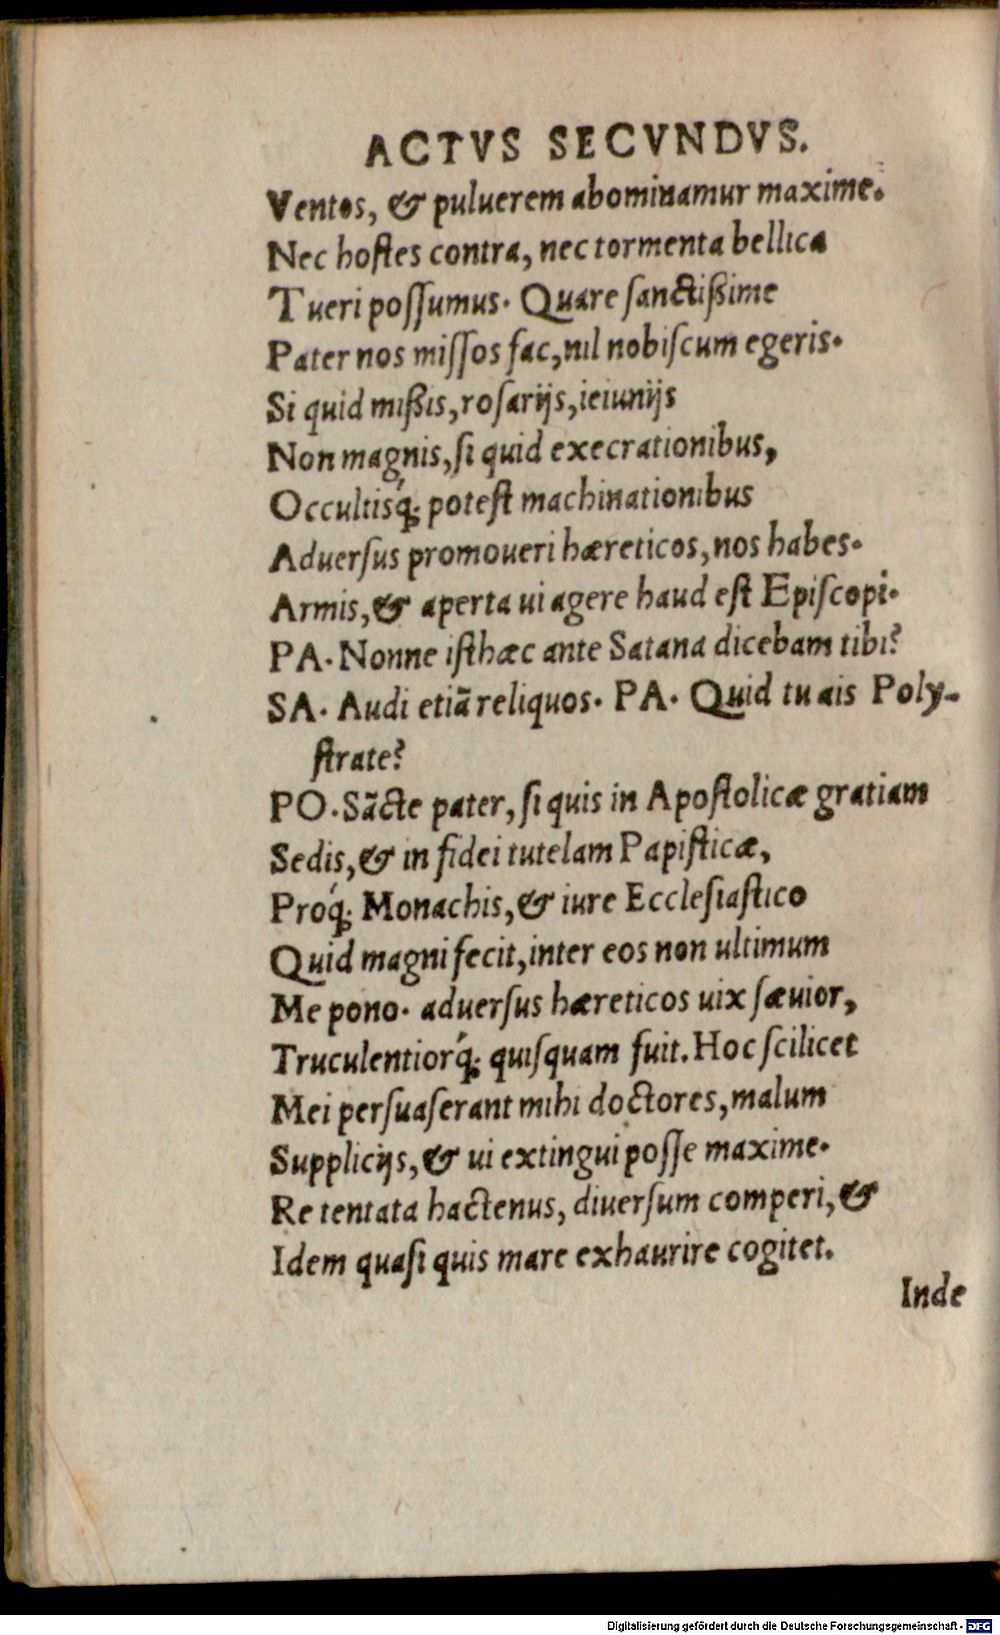 ACTVS SECVNDVS.
Ventos, & puluerem abominamur maxime.
Nec hoſtes contra, nec tormenta bellica
Tueri poſſumus. Quare ſanctißime
Pater nos miſſos fac, nil nobiſcum egeris.
Si quid mißis, roſarijs, ieiunijs
Non magnis, ſi quid execrationibus,
Occultisq́; poteſt machinationibus
Aduerſus promoueri hæreticos, nos habes.
Armis, & aperta ui agere haud eſt Epiſcopi.
PA. Nonne iſthæc ante Satana dicebam tibi?
SA. Audi etiā reliquos. PA. Quid tu ais Poly-
ſtrate?
PO. Sācte pater, ſi quis in Apoſtolicæ gratiam
Sedis, & in fidei tutelam Papiſticæ,
Proq́; Monachis, & iure Eccleſiaſtico
Quid magni fecit, inter eos non ultimum
Me pono. aduerſus hæreticos uix ſæuior,
Truculentiorq́; quiſquam fuit. Hoc ſcilicet
Mei perſuaſerant mihi doctores, malum
Supplicijs, & ui extingui poſſe maxime.
Re tentata hactenus, diuerſum comperi, &
Idem quaſi quis mare exhaurire cogitet.
Inde
Digitalisierung gefördert durch die Deutsche Forschungsgemeinschaft - DFG